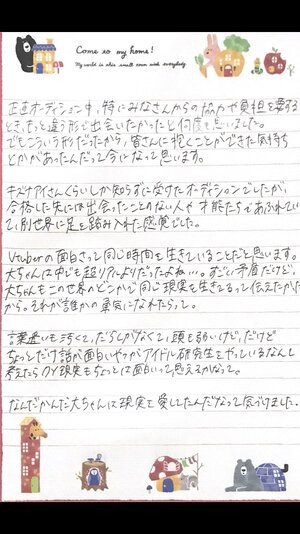 Come to my home!
My world is this small room with everybody.
正直オーディション中、特にみなさんからの協力や負担を要する
とき、もっと違う形で出会いたかったと何度も思いました。
でもこういう形だったから、皆さんに抱くことができた気持ち
とかがあったんだって今になって思います。
キズナアイさんくらいしか知らずに受けたオーディションでしたが、
合格した先には出会ったことのない人や才能たちであふれてい
て別世界に足を踏み入れた感覚でした。
Vtuberの面白さって同じ時間を生きていることだと思います。
犬ちゃんは中でも超リアルよりだったよね…。すごい矛盾だけど、
犬ちゃんもこの世界のどこかで同じ現実を生きてるって伝えたかった
から。それが誰かの勇気になれたらって。
言葉遣いも汚くて、だらしがなくて、頭も弱いけど、だけど
ちょっとだけ話が面白いやつがアイドル研究生をやっているなんて
考えたらクソ現実もちょっとは面白いって思えるかなって。
なんだかんだ犬ちゃんは現実を愛してたんだなって気づけました。